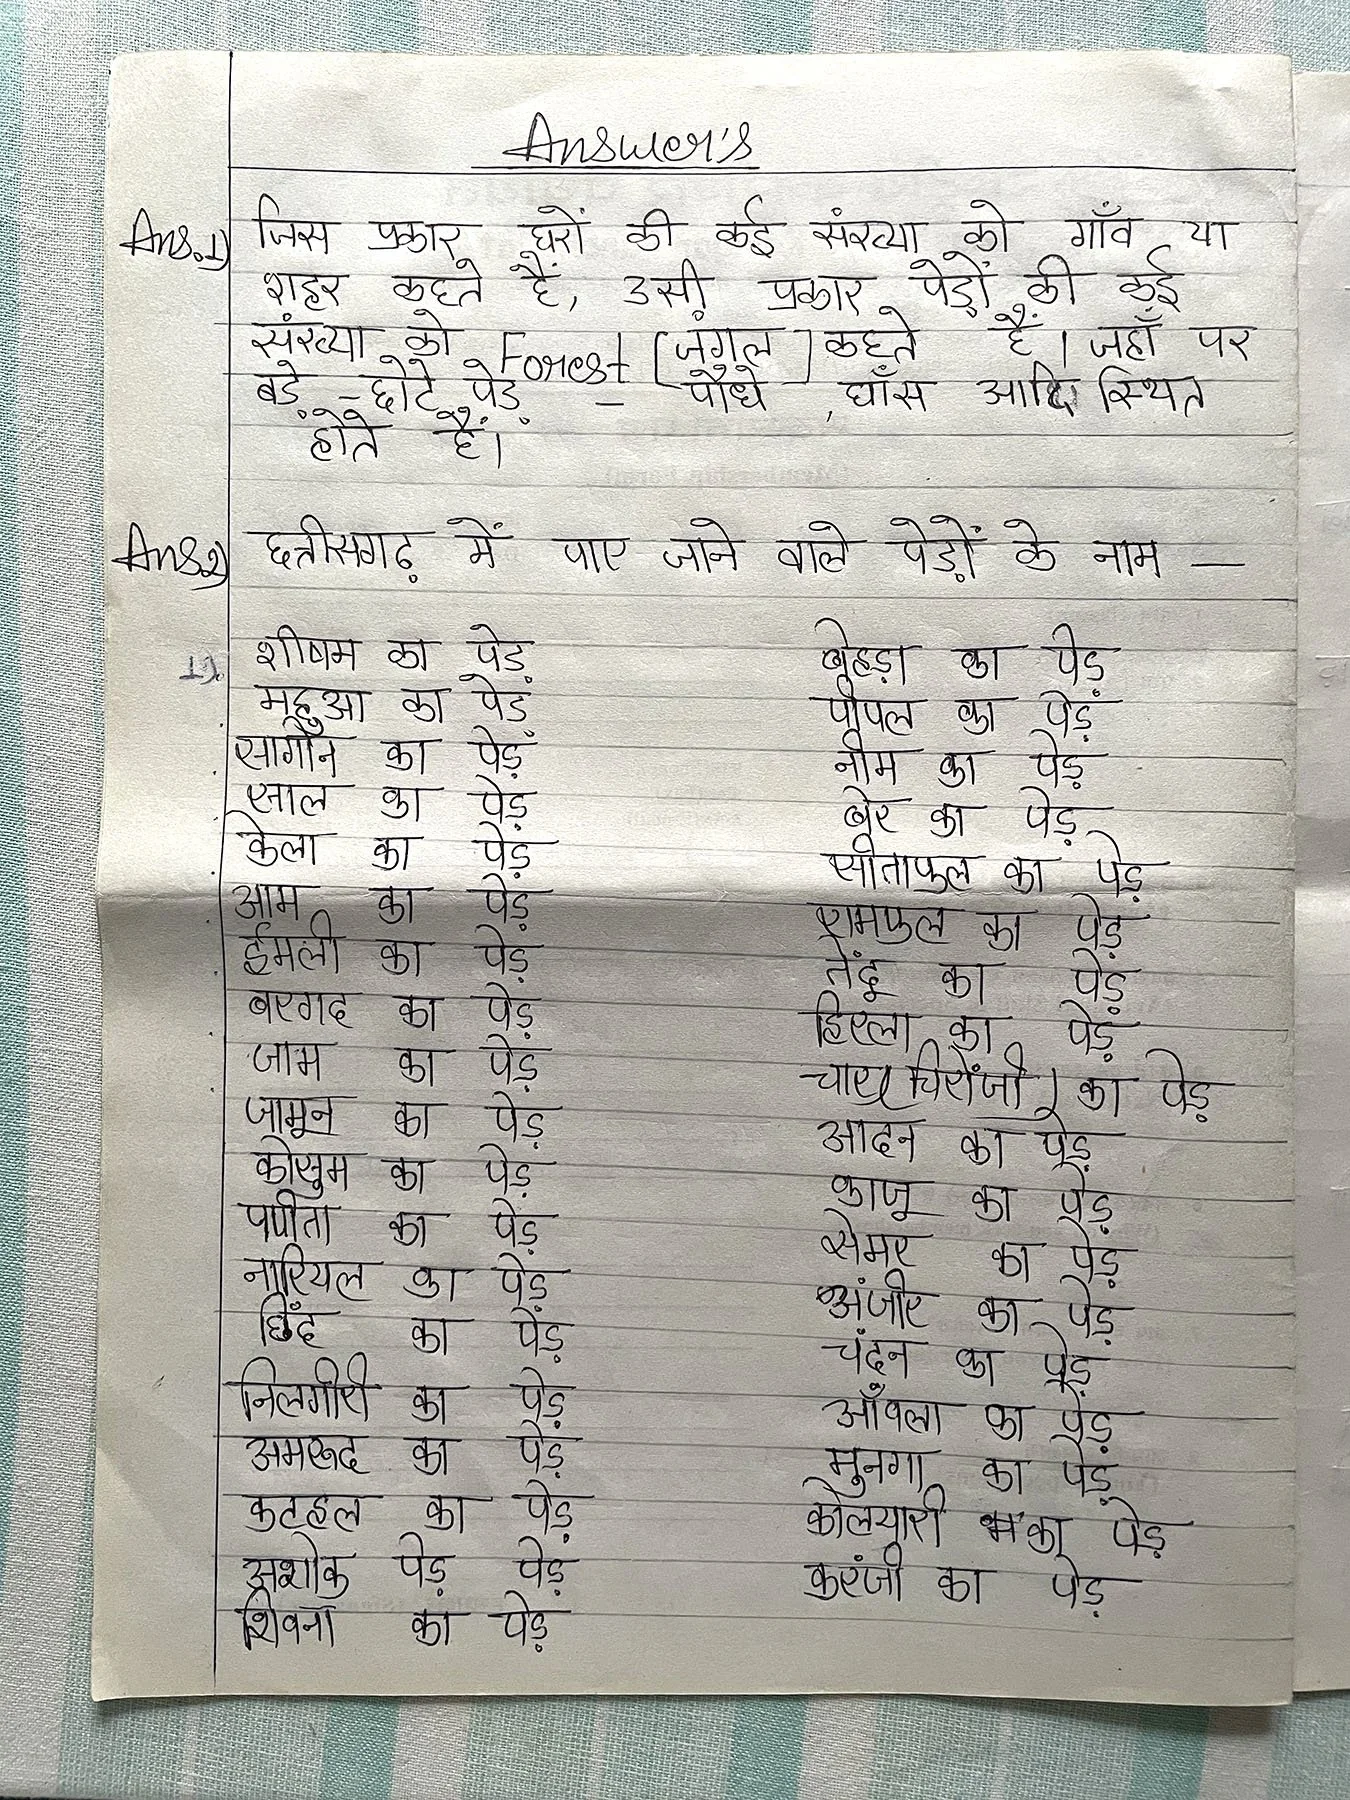 Answer's
Ans.1) जिस प्रकार घरों की कई संख्या को गाँव या
शहर कहते हैं, उसी प्रकार पेड़ों की कई
संख्या को Forest [जंगल] कहते हैं। जहाँ पर
बड़े - छोटे पेड़ - पौधे, घाँस आदि स्थित
होते हैं।
Ans.2) छत्तीसगढ़ में पाए जाने वाले पेड़ों के नाम —
शीषम का पेड़
महुआ का पेड़
सागौन का पेड़
साल का पेड़
केला का पेड़
आम का पेड़
ईमली का पेड़
बरगद का पेड़
जाम का पेड़
जामून का पेड़
कोसुम का पेड़
पपीता का पेड़
नारियल का पेड़
छिंद का पेड़
निलगीरी का पेड़
अमरूद का पेड़
कटहल का पेड़
अशोक पेड़ पेड़
शिवना का पेड़
बेहड़ा का पेड़
पीपल का पेड़
नीम का पेड़
बेर का पेड़
सीताफुल का पेड़
रामफुल का पेड़
तेंदू का पेड़
हिरला का पेड़
चार( चिरोंजी ) का पेड़
आदन का पेड़
काजू का पेड़
सेमर का पेड़
अंजीर का पेड़
चंदन का पेड़
आँवला का पेड़
मुनगा का पेड़
कोलयारी का पेड़
करंजी का पेड़